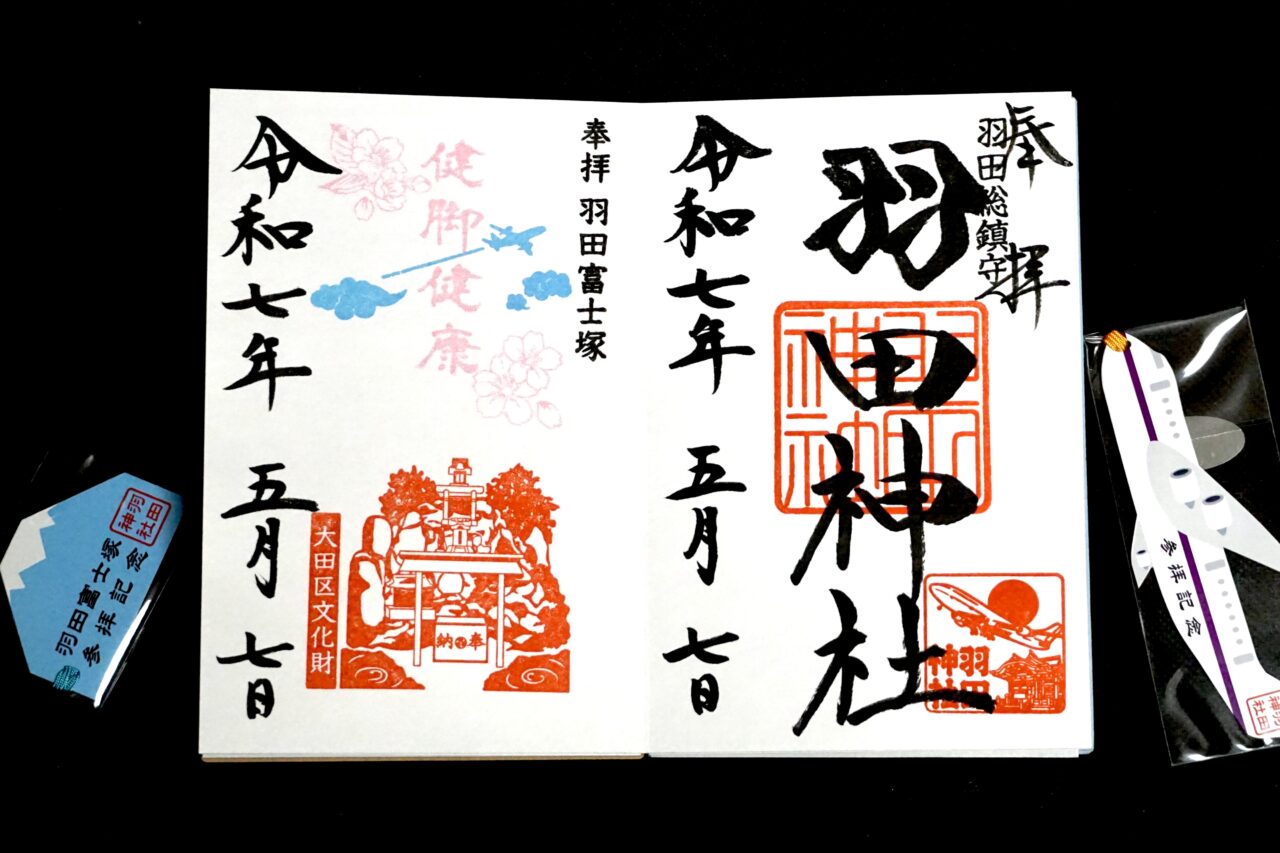 奉拝
羽田総鎮守
羽田神社
羽田神社
羽田神社
令和七年 五月 七日
奉拝 羽田富士塚
健脚健康
奉納
大田区文化財
令和七年 五月 七日
羽田神社
羽田富士塚
参拝記念
参拝記念
羽田神社